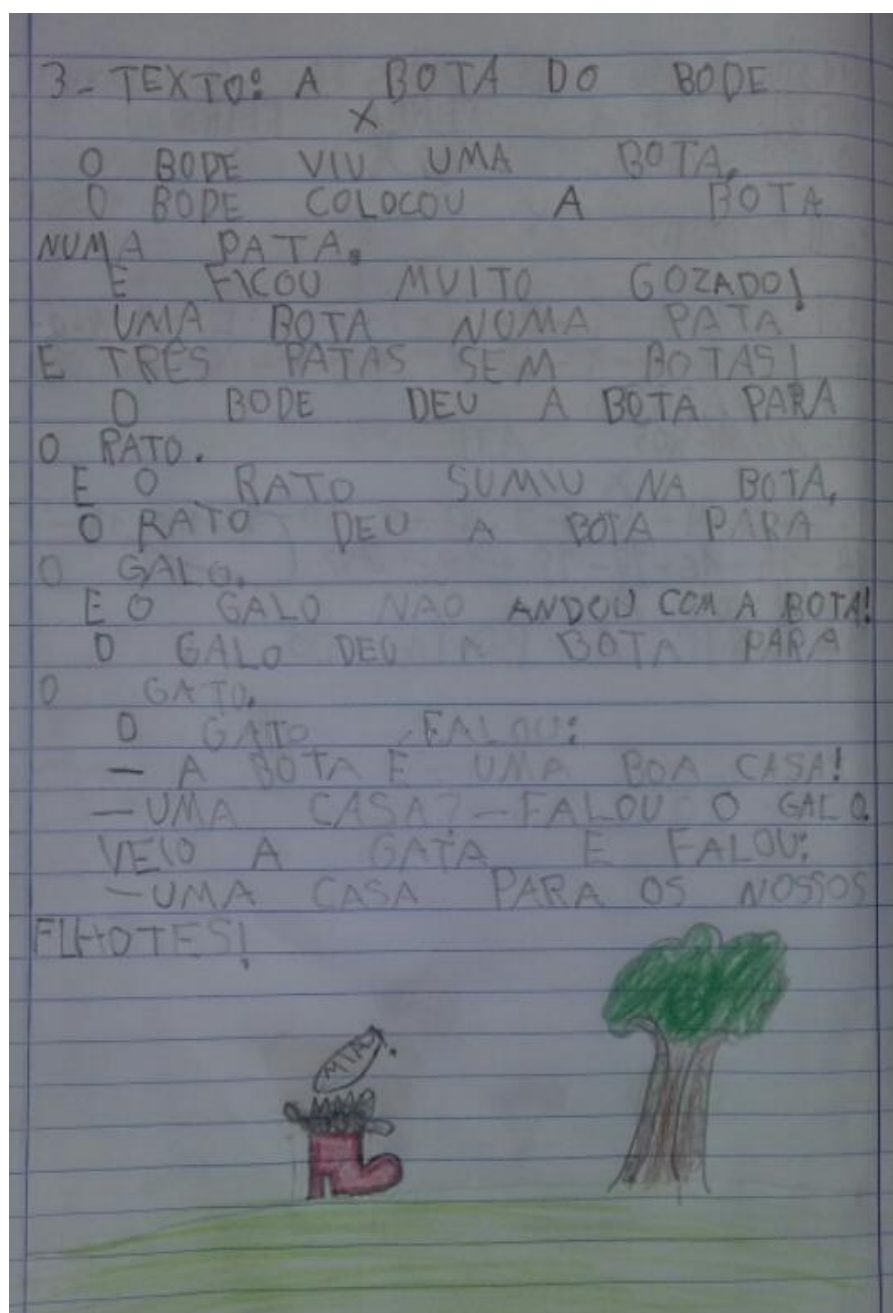 3- TEXTO: A BOTA DO BODE
X
O BODE VIU UMA BOTA.
O BODE COLOCOU A BOTA
NUMA PATA.
E FICOU MUITO GOZADO!
UMA BOTA NUMA PATA
E TRÊS PATAS SEM BOTAS!
O BODE DEU A BOTA PARA
O RATO.
E O RATO SUMIU NA BOTA.
O RATO DEU A BOTA PARA
O GALO.
E O GALO NÃO ANDOU COM A BOTA!
O GALO DEU A BOTA PARA
O GATO.
O GATO FALOU:
— A BOTA É UMA BOA CASA!
— UMA CASA? — FALOU O GALO.
VEIO A GATA E FALOU:
— UMA CASA PARA OS NOSSOS
FLHOTES!
MIAU